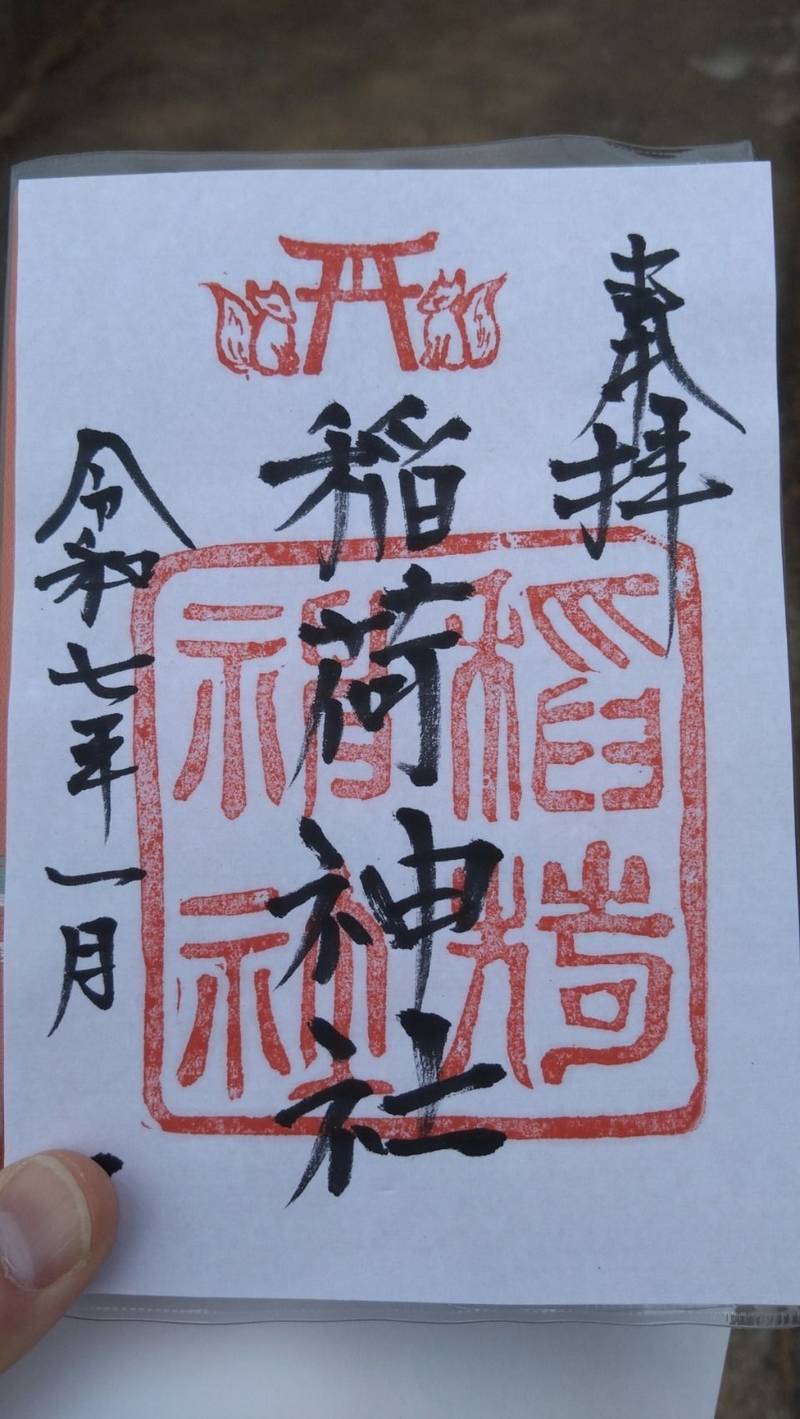 奉拝
稲荷神社
稲荷
神社
令和七年一月